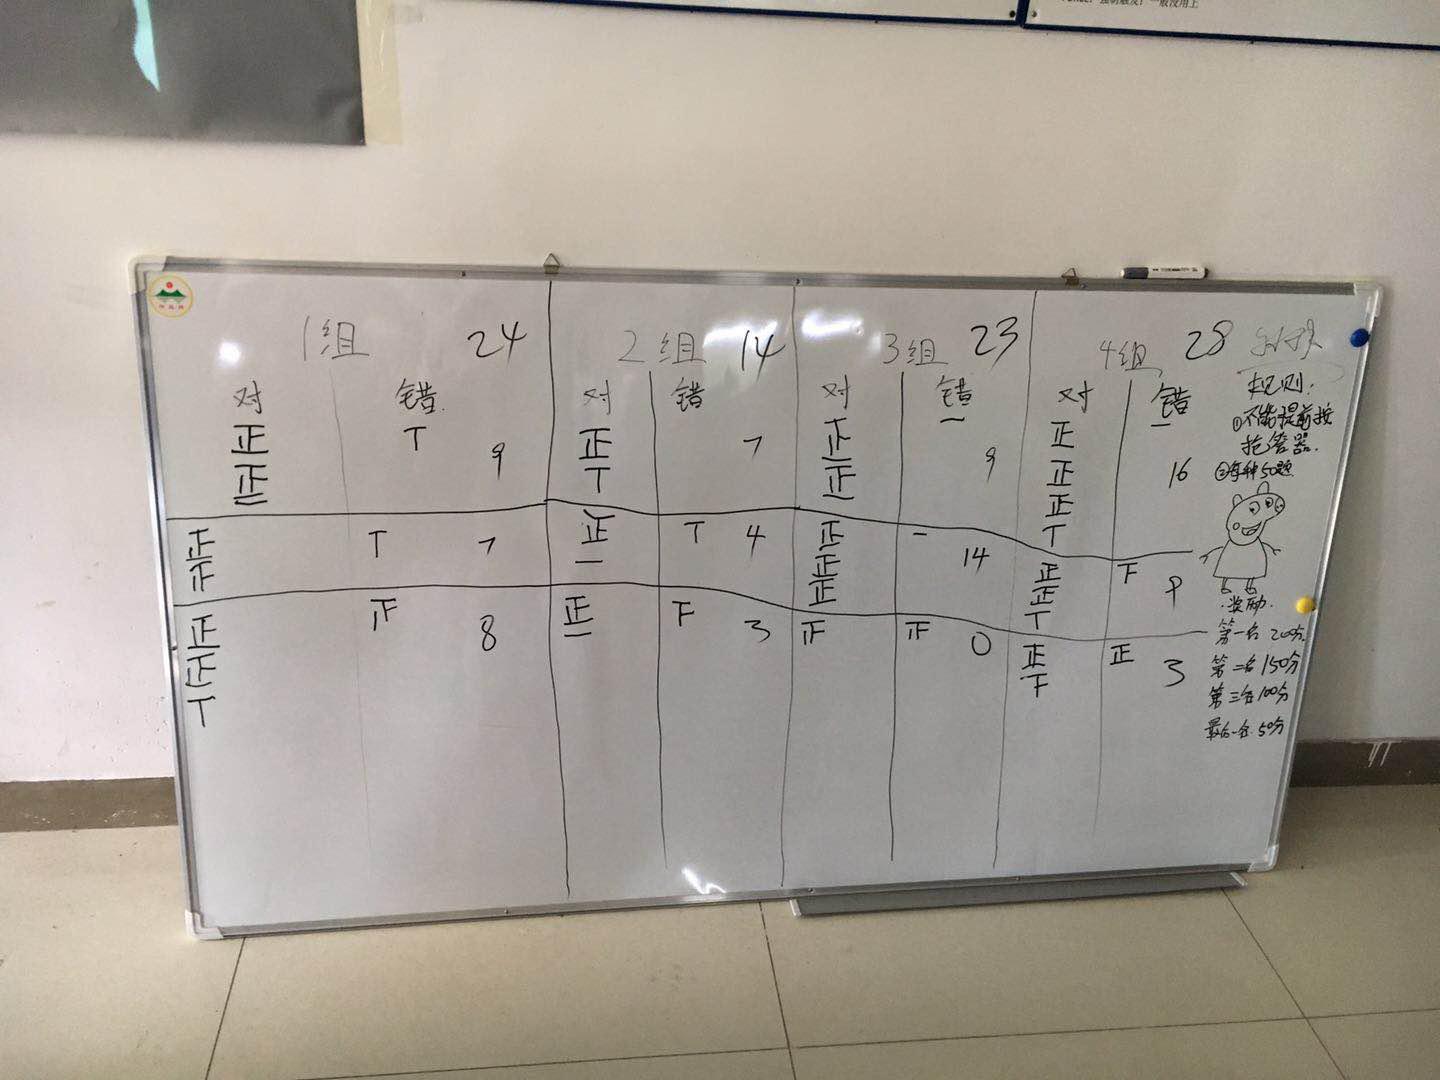 强制触发：一般没用上
1组 24 2组 14 3组 23 4组 28
对 错 对 错 对 错 对 错
正 T 正 7 正 一 正 一
正 9 T 正 9 正 16
一 正
T
正 T 7 正 T 4 正 一 14 正 下 9
正 一 正 正
正 T
正 正 8 正 下 3 正 正 0 正 正 3
正 一 下
T
规则：
①不能提前按
抢答器.
②每种50题
奖励.
第一名 200分.
第二名 150分
第三名 100分
最后一名 50分